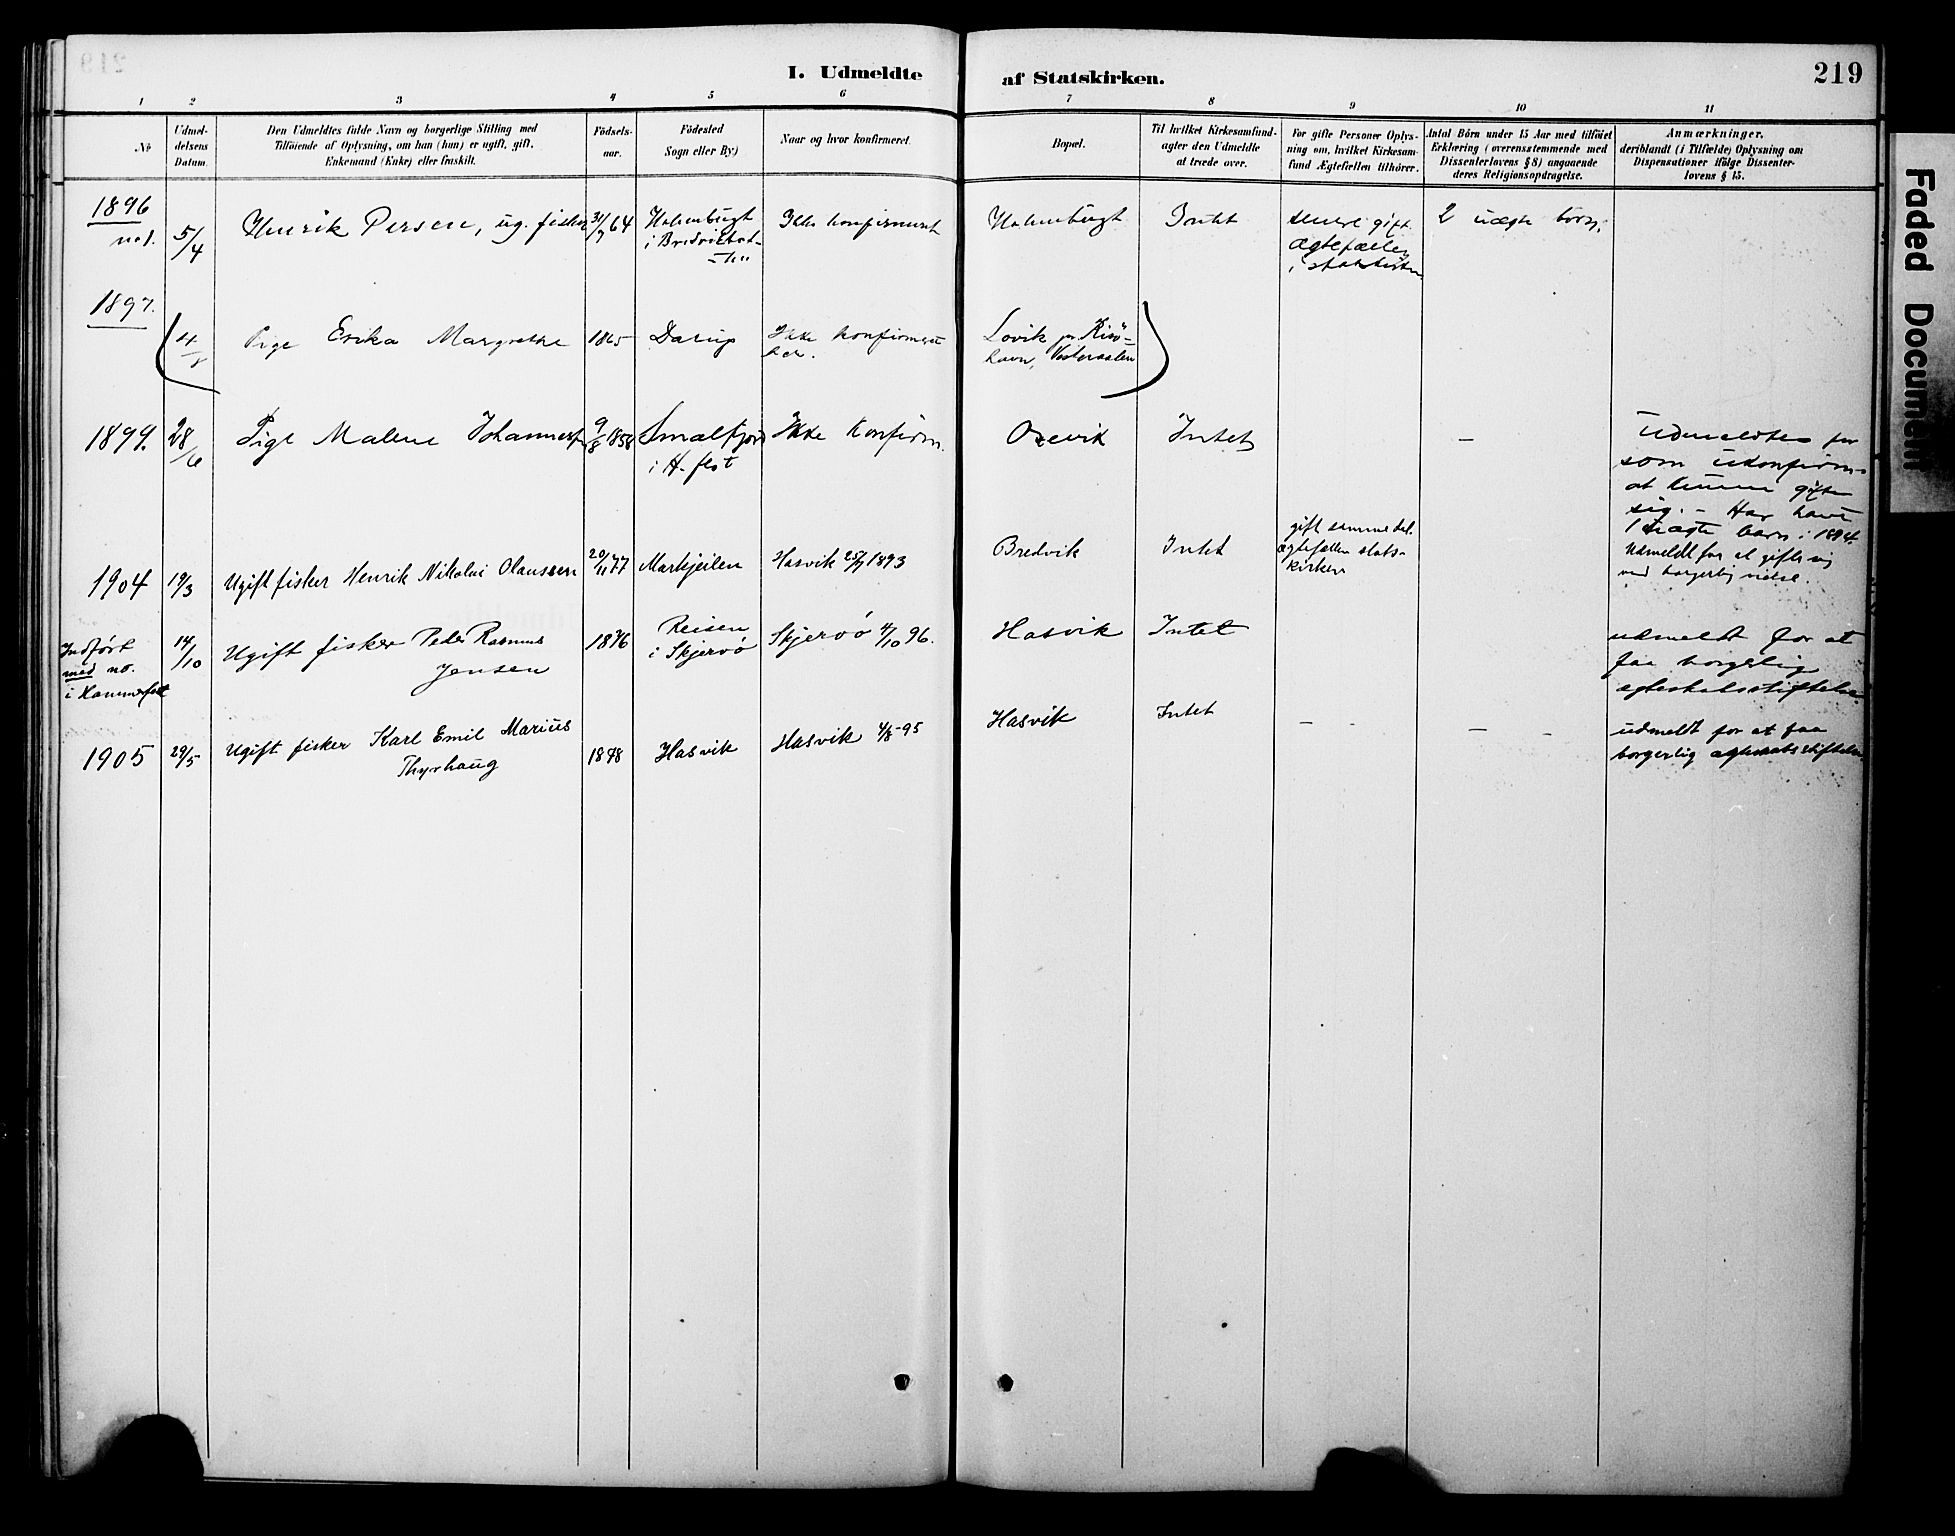 219
I. Udmeldte af Statskirken.
219
1 2 3 4 5 6 7 8 9 10 11
No
Udmel-
delsens
Datum.
Den Udmeldtes fulde Navn og borgerlige Stilling med
Tilföiende af Oplysning, om han (hun) er ugift, gift,
Enkemand (Enke) eller fraskilt.
Födsels-
aar.
Födested
Sogn eller By)
Naar og hvor konfirmeret.
Bopæl.
Til hvilket Kirkesamfund-
agter den Udmeldte
at træde over.
For gifte Personer Oplys-
ning om, hvilket Kirkesam-
fund Ægtefællen tilhörer.
Antal Börn under 15 Aar med tilföiet
Erklæring (overensstemmende med
Dissenterlovens § 8) angaaende
deres Religionsopdragelse.
Anmærkninger,
deriblandt (i Tilfælde) Oplysning om
Dispensationer ifölge Dissenter-
lovens § 15.
1896
no 1.
5/4
Henrik Persen, ug. fisker
31/7 64
Holmbugt
Ikke konfirmeret
Holmbugt
Intet
senere gift.
ægtefælle
i statskirken
2 uægte börn.
1897.
Pige Erika Margrethe
1865
Darup
Ikke konfirmeret
her.
Lovik pr Risö-
havn, Vesteraalen
1899.
28/6
Pige Malene Johannesen
9/8 1858
Smalfjord
i H. fest
Ikke Konfirm.
Oxevik
Intet
—
Udmeldtes for
som ukonfirm.
at kunne gifte
sig. – Har havt
1 uægte barn i 1894.
1904
19/3
Ugift fisker Henrik Nikolai Olaussen
20/11 77
Markeilen
Hasvik 25/7 1893
Bredvik
Intet
gift samme dal.
ægtefællen stats-
kirken
Udmeldt for at gifte sig
ved borgerlig vielse.
Indfört
med no.
i Hammerfest
14/10
Ugift fisker Peder Rasmus
Jensen
1876
Reisen
i Skjervö
Skjervö 4/10 96.
Hasvik
Intet
udmeldt for at
faa borgerlig
ægteskabsstiftelse
1905
29/5
Ugift fisker Karl Emil Marius
Thyrhaug
1878
Hasvik
Hasvik 4/8-95
Hasvik
Intet
— —
— —
udmeldt for at faa
borgerlig ægteskabsstiftelse
Faded Document